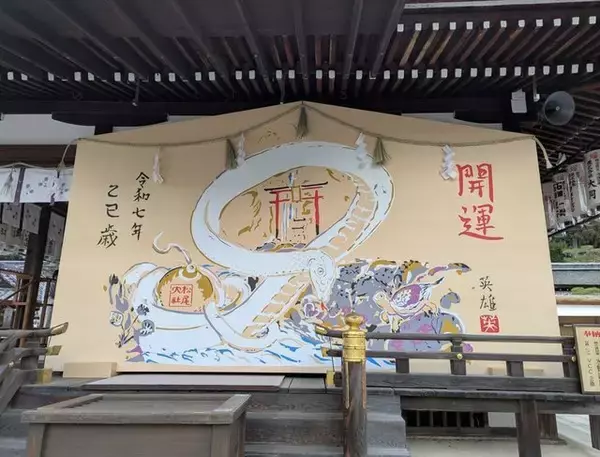 開運
英雄
松尾
大社
令和七年
乙巳歳
奉納